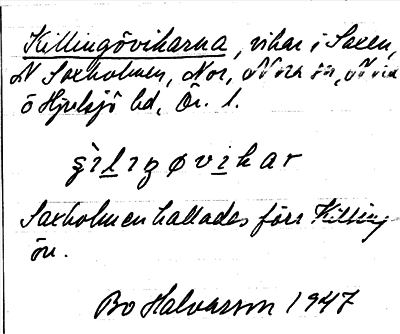 Killingövikarna, vikar i Saxen,
N Saxholmen, Nor, Nora sn, N vid
ö Hjulsjö bd, Ör. l.
ʂìliŋøvikar
Saxholmen kallades förr Killing
ön.
Bo Halvarson 1947